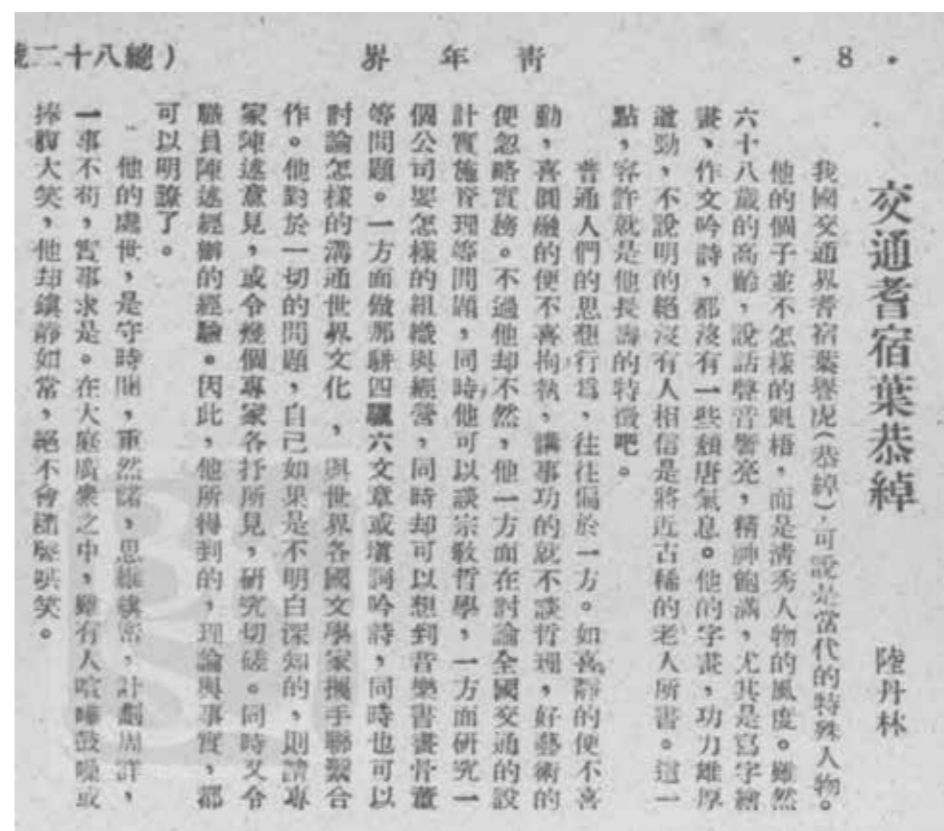 · 8 ·
青年界
（總八十二號
交通耆宿葉恭綽
陸丹林
我國交通界耆宿葉譽虎(恭綽)，可說是當代的特殊人物。
他的個子並不怎樣的魁梧，而是清秀人物的風度。雖然
六十八歲的高齡，說話聲音響亮，精神飽滿，尤其是寫字繪
畫、作文吟詩，都沒有一些頹唐氣息。他的字畫，功力雄厚
遒勁，不說明的絕沒有人相信是將近古稀的老人所書。這一
點，容許就是他長壽的特徵吧。
普通人們的思想行爲，往往偏於一方。如喜靜的便不喜
動，喜圓融的便不喜拘執，講事功的就不談哲理，好藝術的
便忽略實務。不過他却不然，他一方面在討論全國交通的設
計實施管理等問題，同時他可以談宗敎哲學，一方面硏究一
個公司要怎樣的組織與經營，同時却可以想到音樂書畫骨董
等問題。一方面做那駢四驪六文章或塡詞吟詩，同時也可以
討論怎樣的溝通世界文化，與世界各國文學家攜手聯繫合
作。他對於一切的問題，自己如果是不明白深知的，則請專
家陳述意見，或令幾個專家各抒所見，研究切磋。同時又令
職員陳述經辦的經驗。因此，他所得到的，理論與事實，都
可以明瞭了。
他的處世，是守時間，重然諾，思維縝密，計劃周詳，
一事不苟，實事求是。在大庭廣衆之中，雖有人喧嘩鼓噪或
捧腹大笑，他却鎭靜如常，絕不會謔笑。